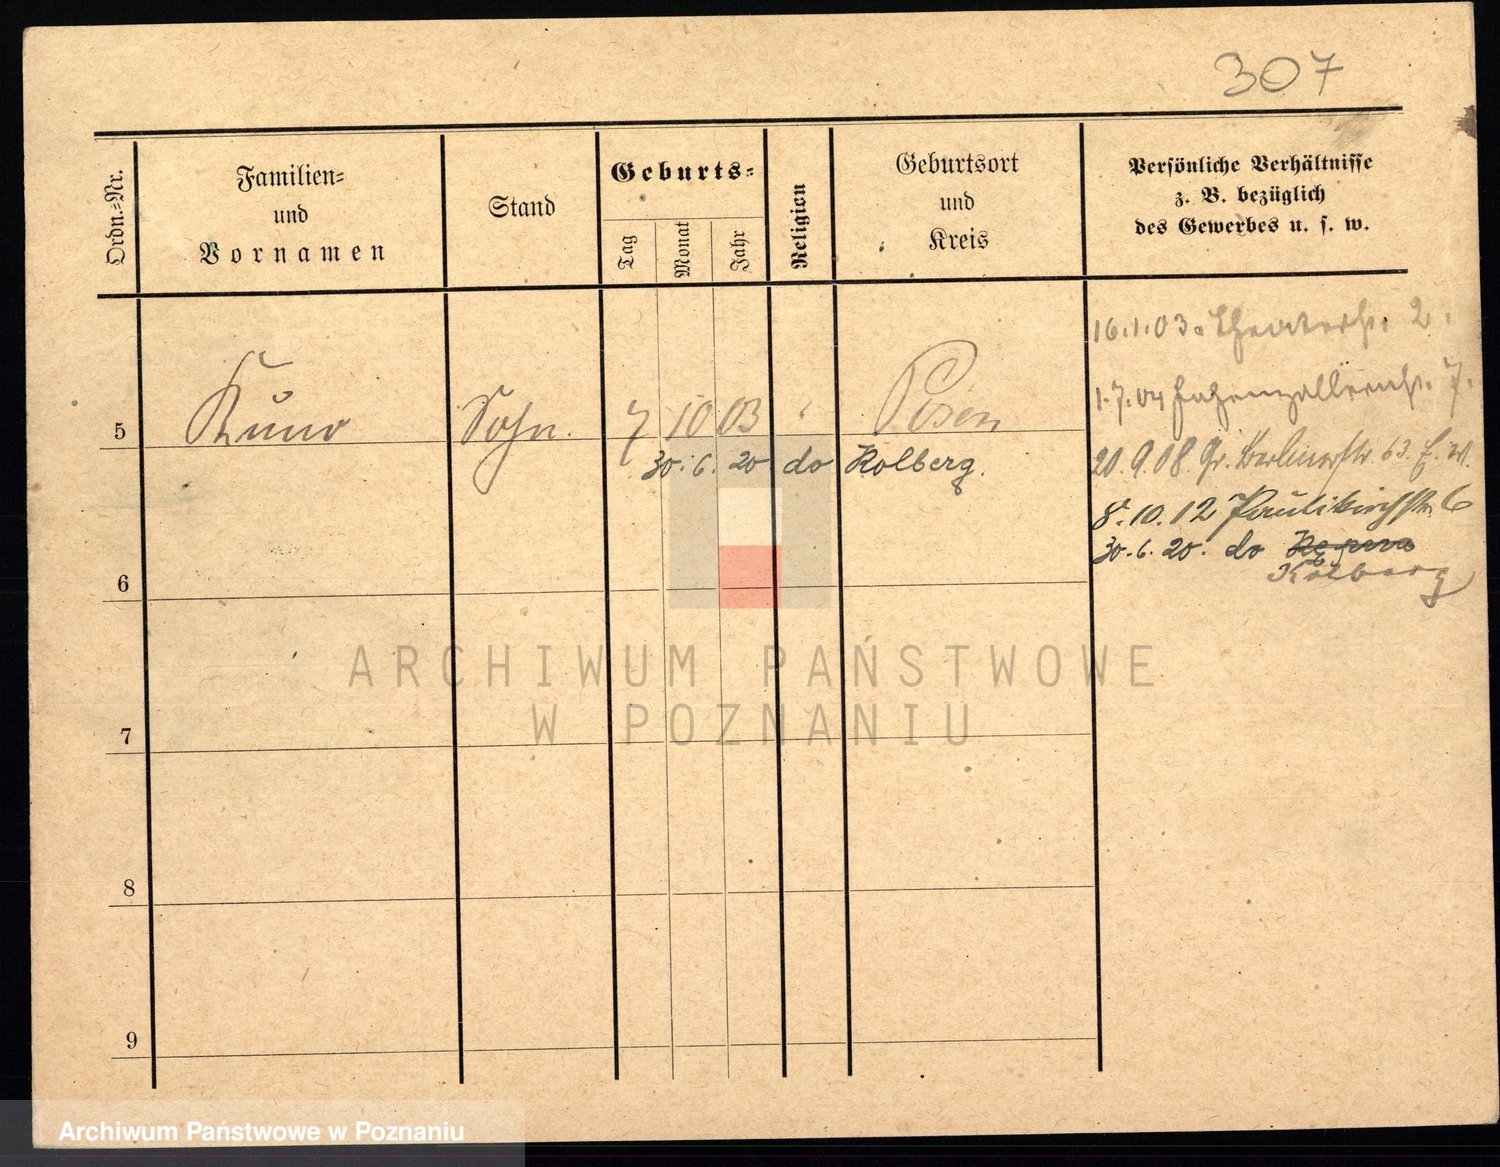 307
Ordn.-Nr.
Familien-
und
Vornamen
Stand
Geburts-
Tag
Monat
Jahr
Religion
Geburtsort
und
Kreis
Persönliche Verhältnisse
z. B. bezüglich
des Gewerbes u. s. w.
16.1.03. Theaterstr. 2.
1.7.04 Hohenzollernstr. 7.
5 Kuno Sohn. 7 10 03 Posen
30.6.20 do Kolberg.
20.9.08 Gr. Berlinerstr. 63.
8.10.12 Paulikirchstr. 6
30.6.20. do
Kolberg
6
7
8
9
ARCHIWUM PAŃSTWOWE
W POZNANIU
Archiwum Państwowe w Poznaniu